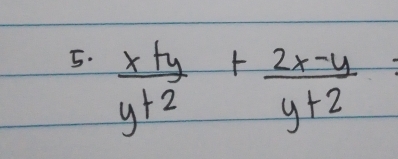 5. (x+y)/(y+2) + (2x-y)/(y+2) =